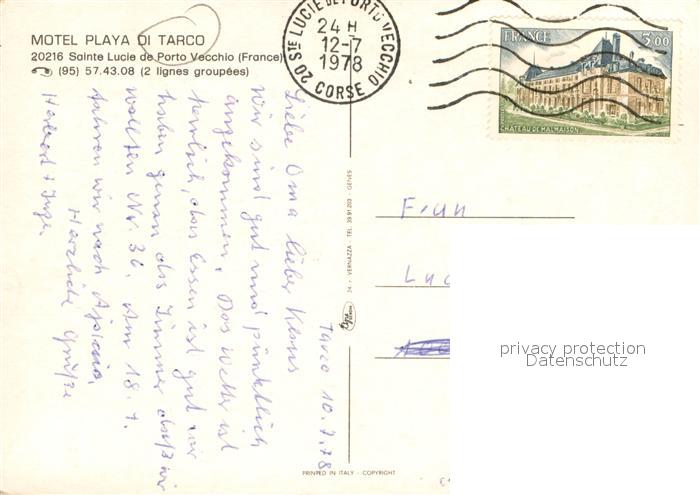 MOTEL PLAYA DI TARCO
20216 Sainte Lucie de Porto Vecchio (France)
(95) 57.43.08 (2 lignes groupées)
20 STE LUCIE DE PORTO-VECCHIO
24 H
12-7
1978
CORSE
FRANCE
3,00
CHATEAU DE MALMAISON
Tarco 10.7.78
Liebe Oma lieber Klaus
Wir sind gut und pünktlich
angekommen. Das Wetter ist
herrlich, das Essen ist gut wir
haben genau das Zimmer daß wir
wollten Nr. 36. Am 18.7.
fahren wir nach Ajaccio.
Herzliche Grüße
Helmut + Inge.
Frau
Luc
24 - VERNAZZA - TEL. 39.91.203 - GENES
PRINTED IN ITALY - COPYRIGHT
privacy protection
Datenschutz